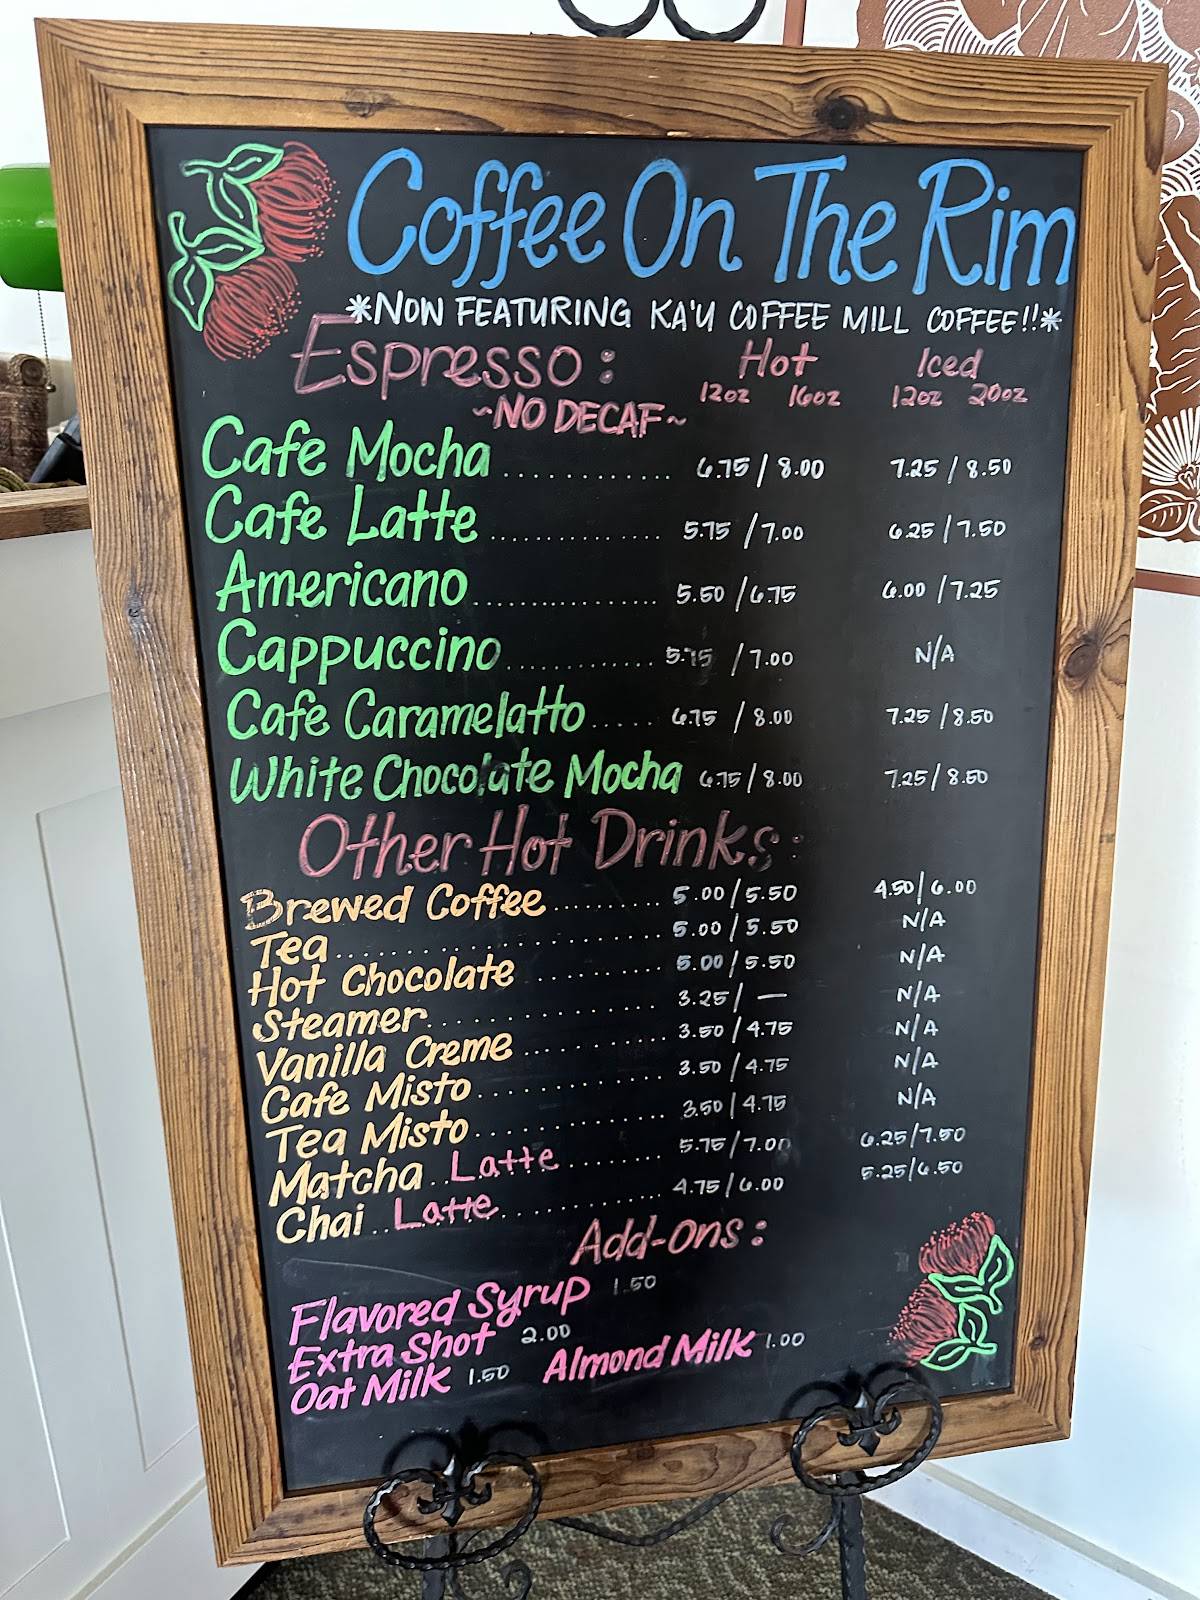 Coffee On The Rim
*NOW FEATURING KA'U COFFEE MILL COFFEE!!*
Espresso: Hot Iced
12oz 16oz 12oz 20oz
~NO DECAF~
Cafe Mocha .......... 6.75 / 8.00 7.25 / 8.50
Cafe Latte .......... 5.75 / 7.00 6.25 / 7.50
Americano .......... 5.50 / 6.75 6.00 / 7.25
Cappuccino .......... 5.75 / 7.00 N/A
Cafe Caramelatto ..... 6.75 / 8.00 7.25 / 8.50
White Chocolate Mocha 6.75 / 8.00 7.25 / 8.50
Other Hot Drinks:
Brewed Coffee .......... 5.00 / 5.50 4.50 / 6.00
Tea .......... 5.00 / 5.50 N/A
Hot Chocolate .......... 5.00 / 5.50 N/A
Steamer .......... 3.25 / — N/A
Vanilla Creme .......... 3.50 / 4.75 N/A
Cafe Misto .......... 3.50 / 4.75 N/A
Tea Misto .......... 3.50 / 4.75 N/A
Matcha .. Latte ........ 5.75 / 7.00 6.25 / 7.50
Chai .. Latte .......... 4.75 / 6.00 5.25 / 6.50
Add-ons:
Flavored Syrup 1.50
Extra Shot 2.00
Oat Milk 1.50 Almond Milk 1.00